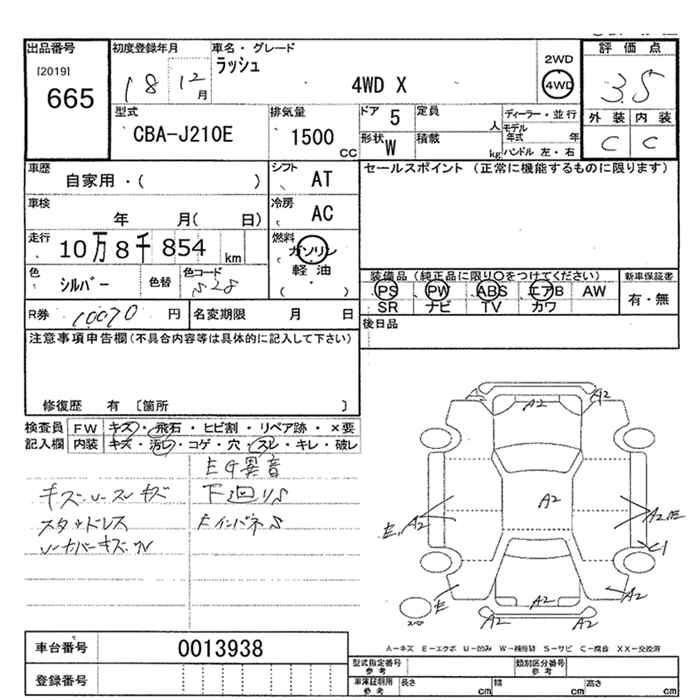 出品番号
[2019]
665
初度登録年月
18 12月
車名・グレード
ラッシュ
4WD X
2WD
4WD
評価点
3.5
外装 内装
C C
型式
CBA-J210E
排気量
1500 CC
ドア 5
定員 人
形状 W
積載 kg
ディーラー・並行
モデル年式 年
ハンドル 左・右
車歴
自家用・( )
シフト AT
セールスポイント (正常に機能するものに限ります)
車検
年 月( 日)
冷房 AC
走行
10万8千854 km
燃料
ガソリン
軽油
( )
色
シルバー
色替
色コード
S28
装備品(純正品に限り○をつけてください)
PS PW ABS エアB AW
SR ナビ TV カワ
新車保証書
有・無
R券 10070 円
名変期限 月 日
後日品
注意事項申告欄(不具合内容等は具体的に記入して下さい)
修復歴 有 〔箇所 〕
検査員記入欄
FW キズ・飛石・ヒビ割・リペア跡・×要
内装 キズ・汚レ・コゲ・穴・スレ・キレ・破レ
EG異音
キズ
下廻りS
スタッドレス
FインパネS
A2
A2
A2
A2
E A2
A2 E
C1
E
A2
A2
A2
A2
A-キズ E-エクボ U-凹み W-補修跡 S-サビ C-腐食 XX-交換済
車台番号 0013938
登録番号
型式指定番号 参考
類別区分番号 参考
車庫証明用 参考
長さ cm 幅 cm 高さ cm